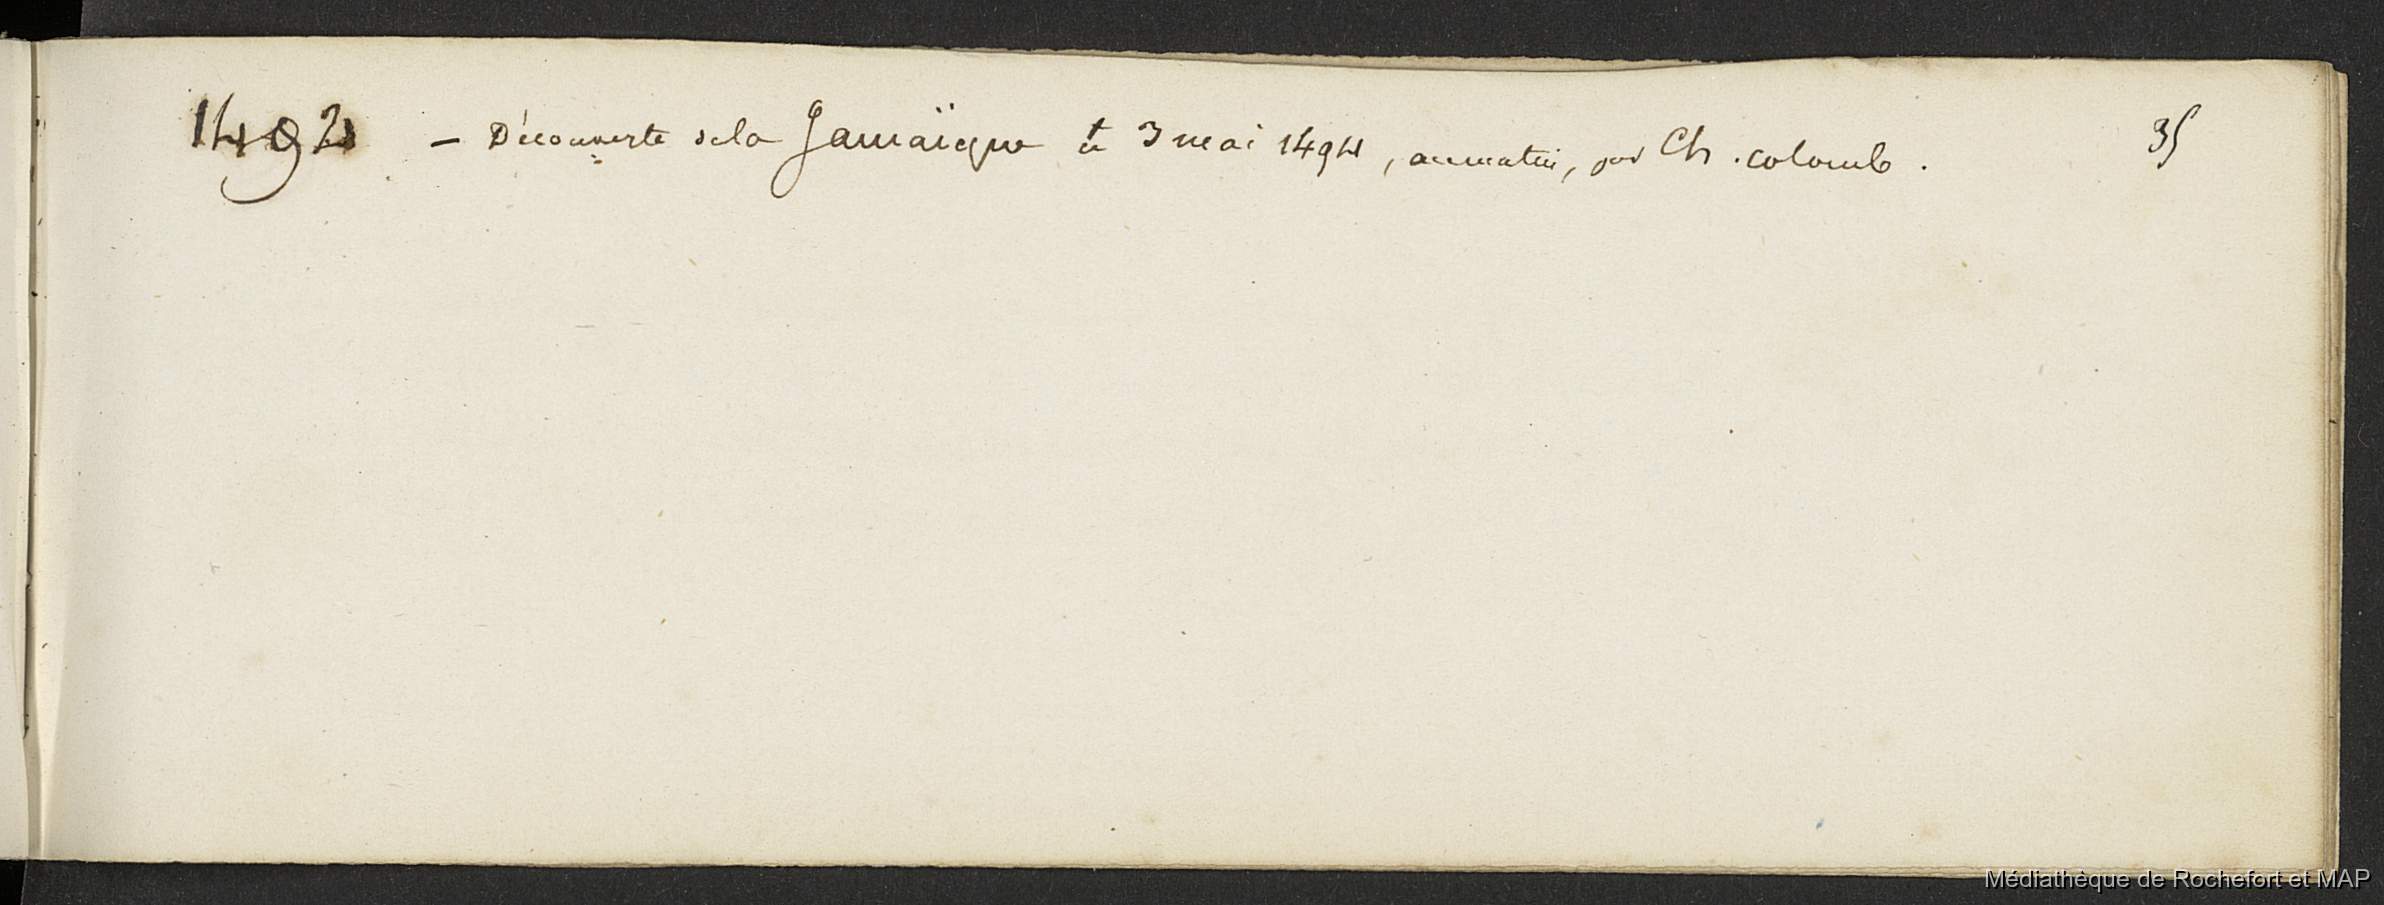 1492 — Découverte de la Jamaïque le 3 mai 1494, au matin, par Ch. colomb. 35
Médiathèque de Rochefort et MAP